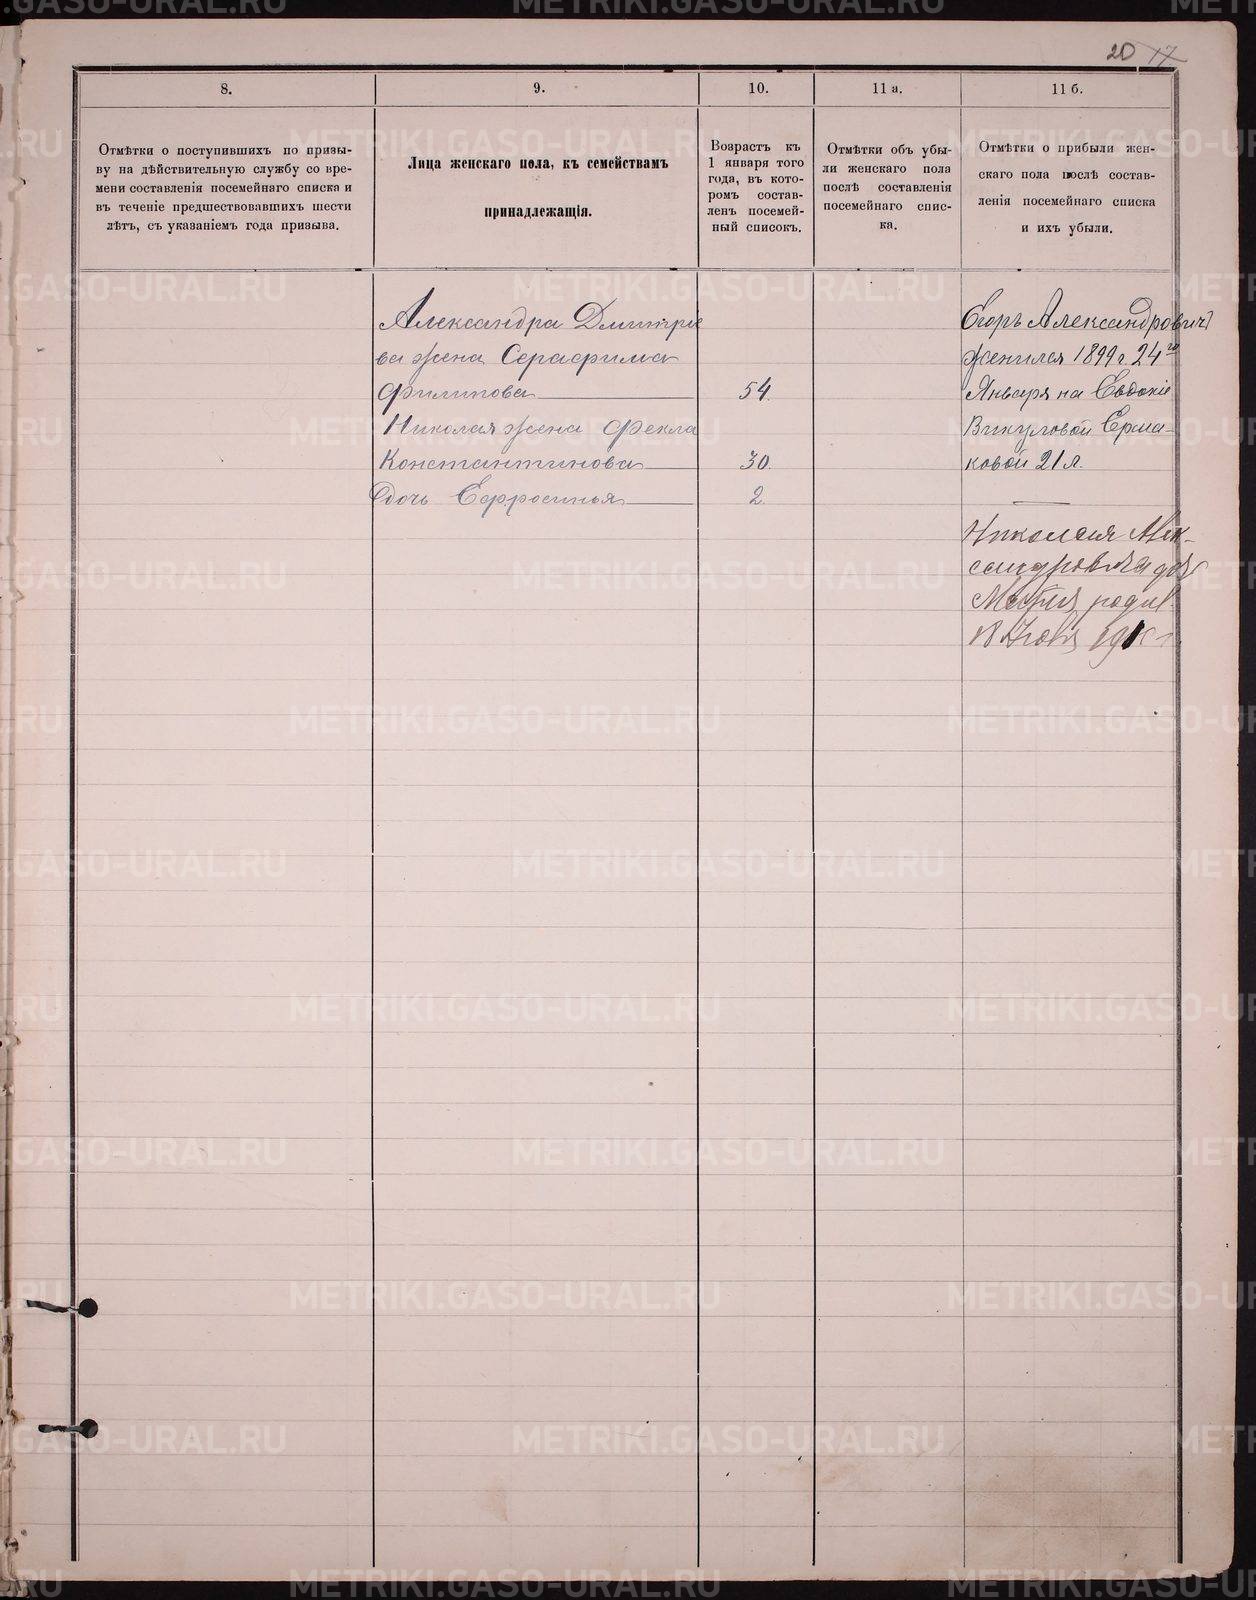 20 17
8.
9.
10.
11 а.
11 б.
Отмѣтки о поступившихъ по призы-
ву на дѣйствительную службу со вре-
мени составленія посемейнаго списка и
въ теченіе предшествовавшихъ шести
лѣтъ, съ указаніемъ года призыва.
Лица женскаго пола, къ семействамъ
принадлежащія.
Возрастъ къ
1 января того
года, въ кото-
ромъ состав-
ленъ посемей-
ный списокъ.
Отмѣтки объ убы-
ли женскаго пола
послѣ составленія
посемейнаго спис-
ка.
Отмѣтки о прибыли жен-
скаго пола послѣ состав-
ленія посемейнаго списка
и ихъ убыли.
Александра Дмитріе
ва жена Серафима
Филипова 54.
Николая жена Фекла
Константинова 30.
дочь Ефросинья 2.
Егоръ Александровичъ
женился 1899 г. 24го
Января на Евдокіе
Викуловой Ерма-
ковой 21 л.
Николая Алек-
сандрова дочь
Марія родил.
18
METRIKI.GASO-URAL.RU